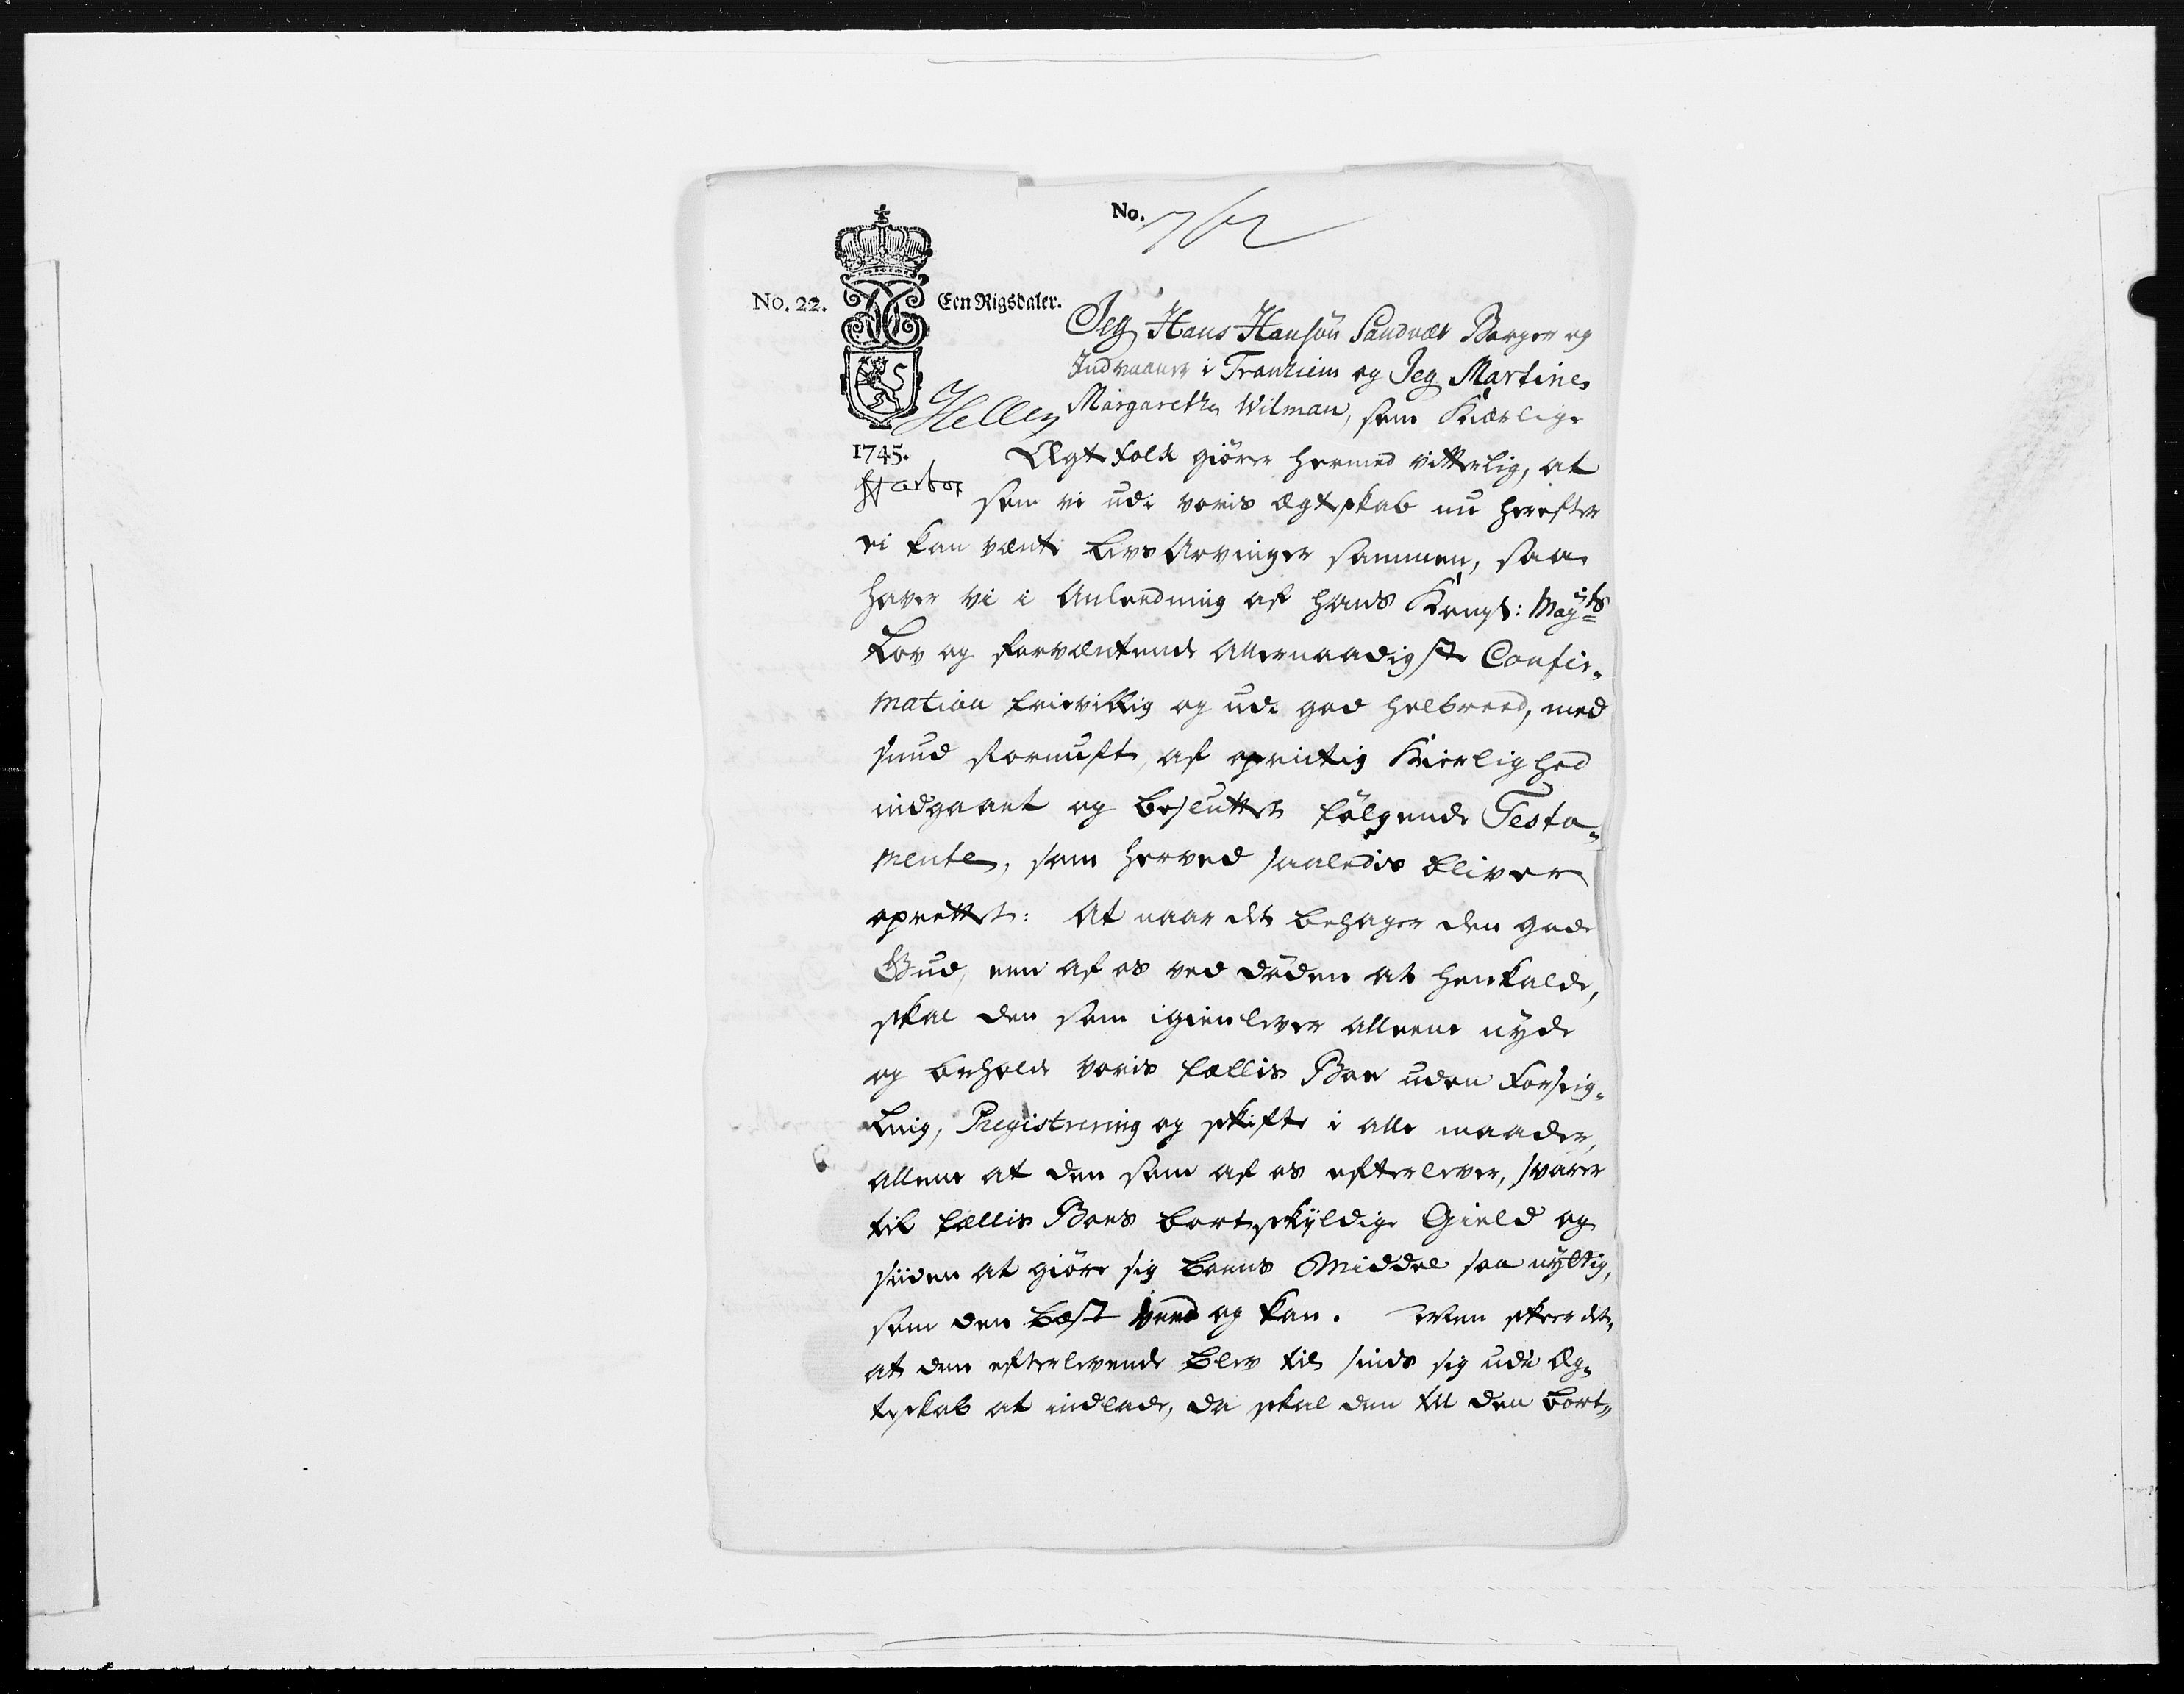 No.
No. 22. Een Rigsdaler.
Jeg Hans Hansön Sandnæs Borger og
Indvaaner i Tronhiem og Jeg Martine
Margaretha Wilman, som Kiærlige
Hellen
1745.
Ægtefolk giörer hermed vitterlig, at
som vi udi voris Ægteskab nu herefter
ei kan vænte Livs Arvinger sammen, saa
haver vi i Anleedning af hans Kongl: May:ts
Lov og forventende Allernaadigste Confir-
mation frievillig og udi god Helbreed, med
sund Fornuft, af oprictig Kierlighed
indgaaet og besluttet fölgende Testa-
mente, som herved saaledis bliver
oprettet: At naar det behager den gode
Gud, een af os ved döden at henkalde,
skal den som igienlever alleene nyde
og beholde voris fællis Boe uden Forseig-
ling, Registrering og skifte i alle maader,
allene at den som af os efterlever, svarer
til fællis Boes bortskyldige Gield og
siiden at giöre sig Boens Middel saa nyttig,
som den best veed og kan. Men skeer det,
at den efterlevende blev till sinds sig udi Æg-
teskab at indlade, da skal den till den bort-